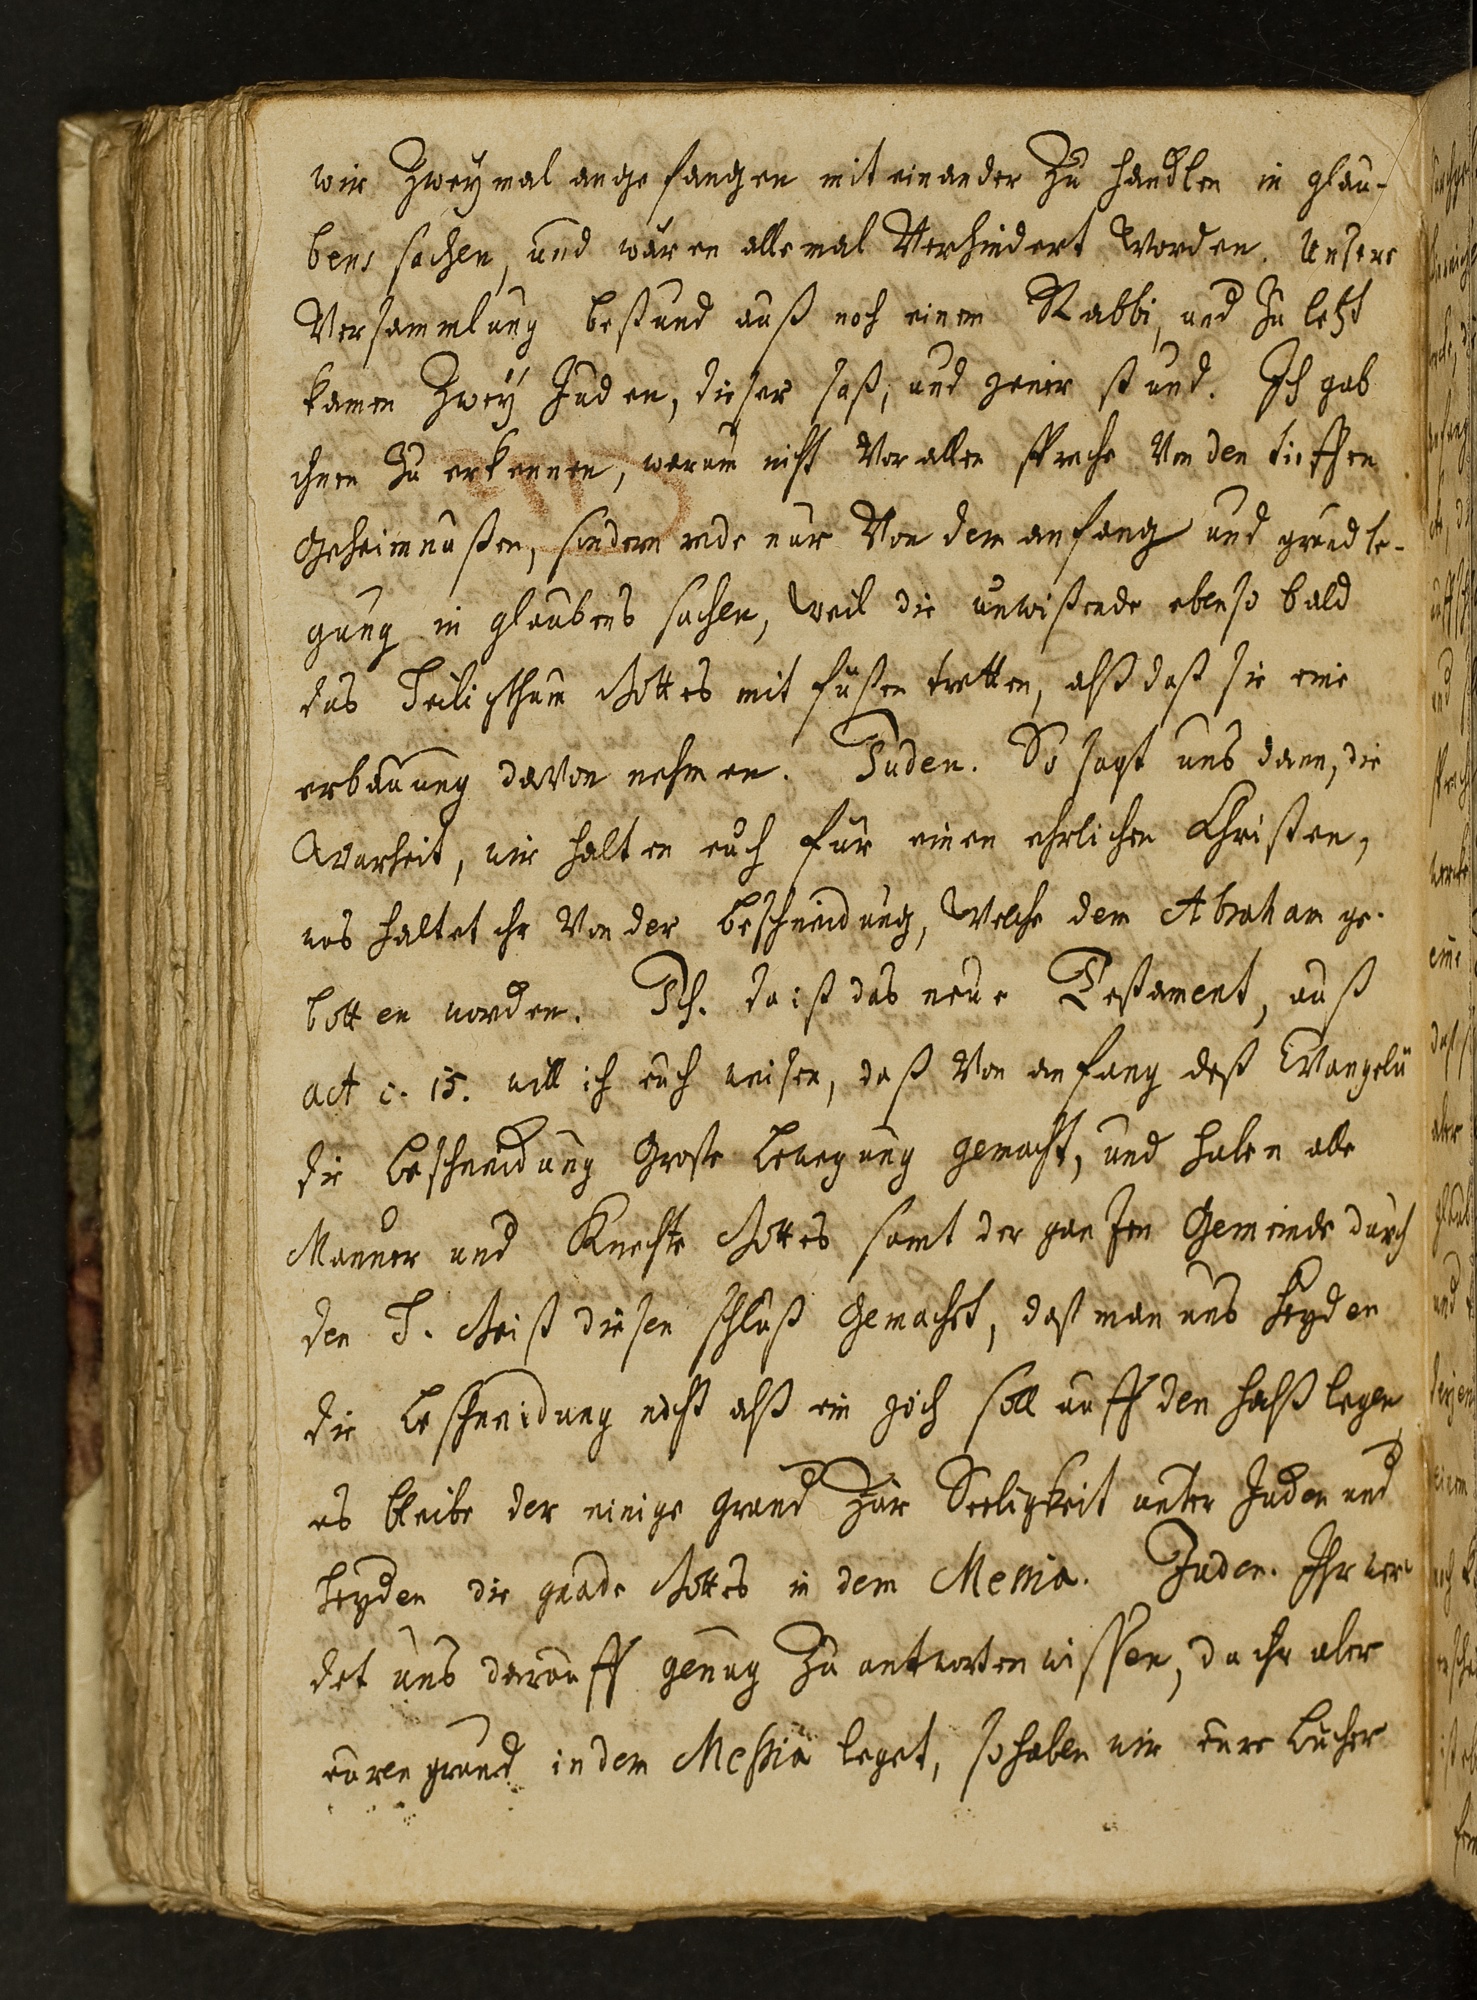 wir Zweymal ange fangen mit einander Zu handlen in glau-
bens sachen, und waren alle mal Verhindert worden. Unsere
Versammlung bestund auß noch einem Rabbi, und Zu letzt
kamen Zwey Juden, dieser saß, und jener stund. Ich gab
ihnen Zu erkennen, warum nicht Vor allen spreche Von den tieffen
Geheimnußen, sondern rede nur Von dem anfang und grundle-
gung in glaubens sachen, weil die unwißende ebenso bald
das Heiligthum Gottes mit füßen tretten, alß daß sie eine
erbauung davon nehmen. Juden. So sagt uns dann, die
Warheit, wir halten euch für einen ehrlichen Christen,
was haltet ihr Von der beschneidung, welche dem Abraham ge-
botten worden. Ich. da ist das neue Testament, auß
act c. 15. will ich euch weisen, daß Von anfang deß Evangelii
die beschneidung Große bewegung gemacht, und haben alle
Männer und Knechte Gottes samt der ganzen Gemeinde durch
den H. Geist diesen schluß Gemacht, daß man uns Heyden
die beschneidung nicht alß ein joch soll auff den halß legen
es bleibe der einige grund Zur Seeligkeit unter Juden und
Heyden die gnade Gottes in dem Messia. Juden. Ihr wer
det uns darauff genug Zu antworten wissen, da ihr aber
euren grund in dem Meßia leget, so haben wir eure bücher